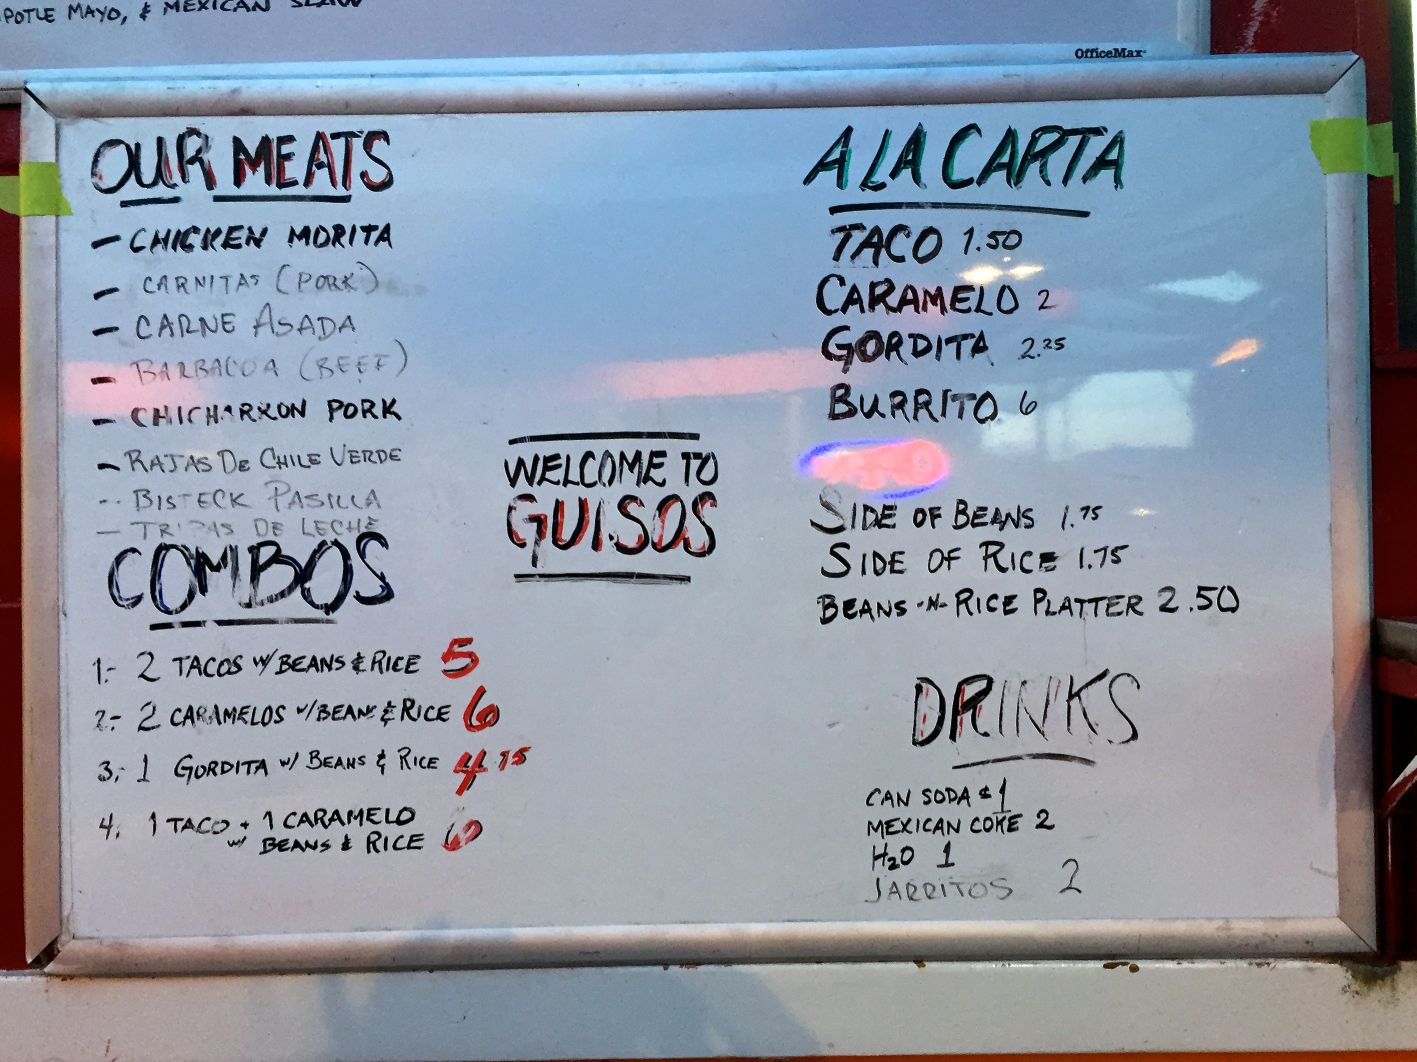 POTLE MAYO, & MEXICAN SLAW
OfficeMax
OUR MEATS
- CHICKEN MORITA
- CARNITAS (PORK)
- CARNE ASADA
- BARBACOA (BEEF)
- CHICHARRON PORK
- RAJAS DE CHILE VERDE
-- BISTECK PASILLA
- TRIPAS DE LECHE
COMBOS
1.- 2 TACOS W/ BEANS & RICE 5
2.- 2 CARAMELOS W/ BEANS & RICE 6
3.- 1 GORDITA W/ BEANS & RICE 4.75
4. 1 TACO + 1 CARAMELO
W/ BEANS & RICE 6
WELCOME TO
GUISOS
A LA CARTA
TACO 1.50
CARAMELO 2
GORDITA 2.25
BURRITO 6
SIDE OF BEANS 1.75
SIDE OF RICE 1.75
BEANS -N- RICE PLATTER 2.50
DRINKS
CAN SODA $1
MEXICAN COKE 2
H2O 1
JARRITOS 2